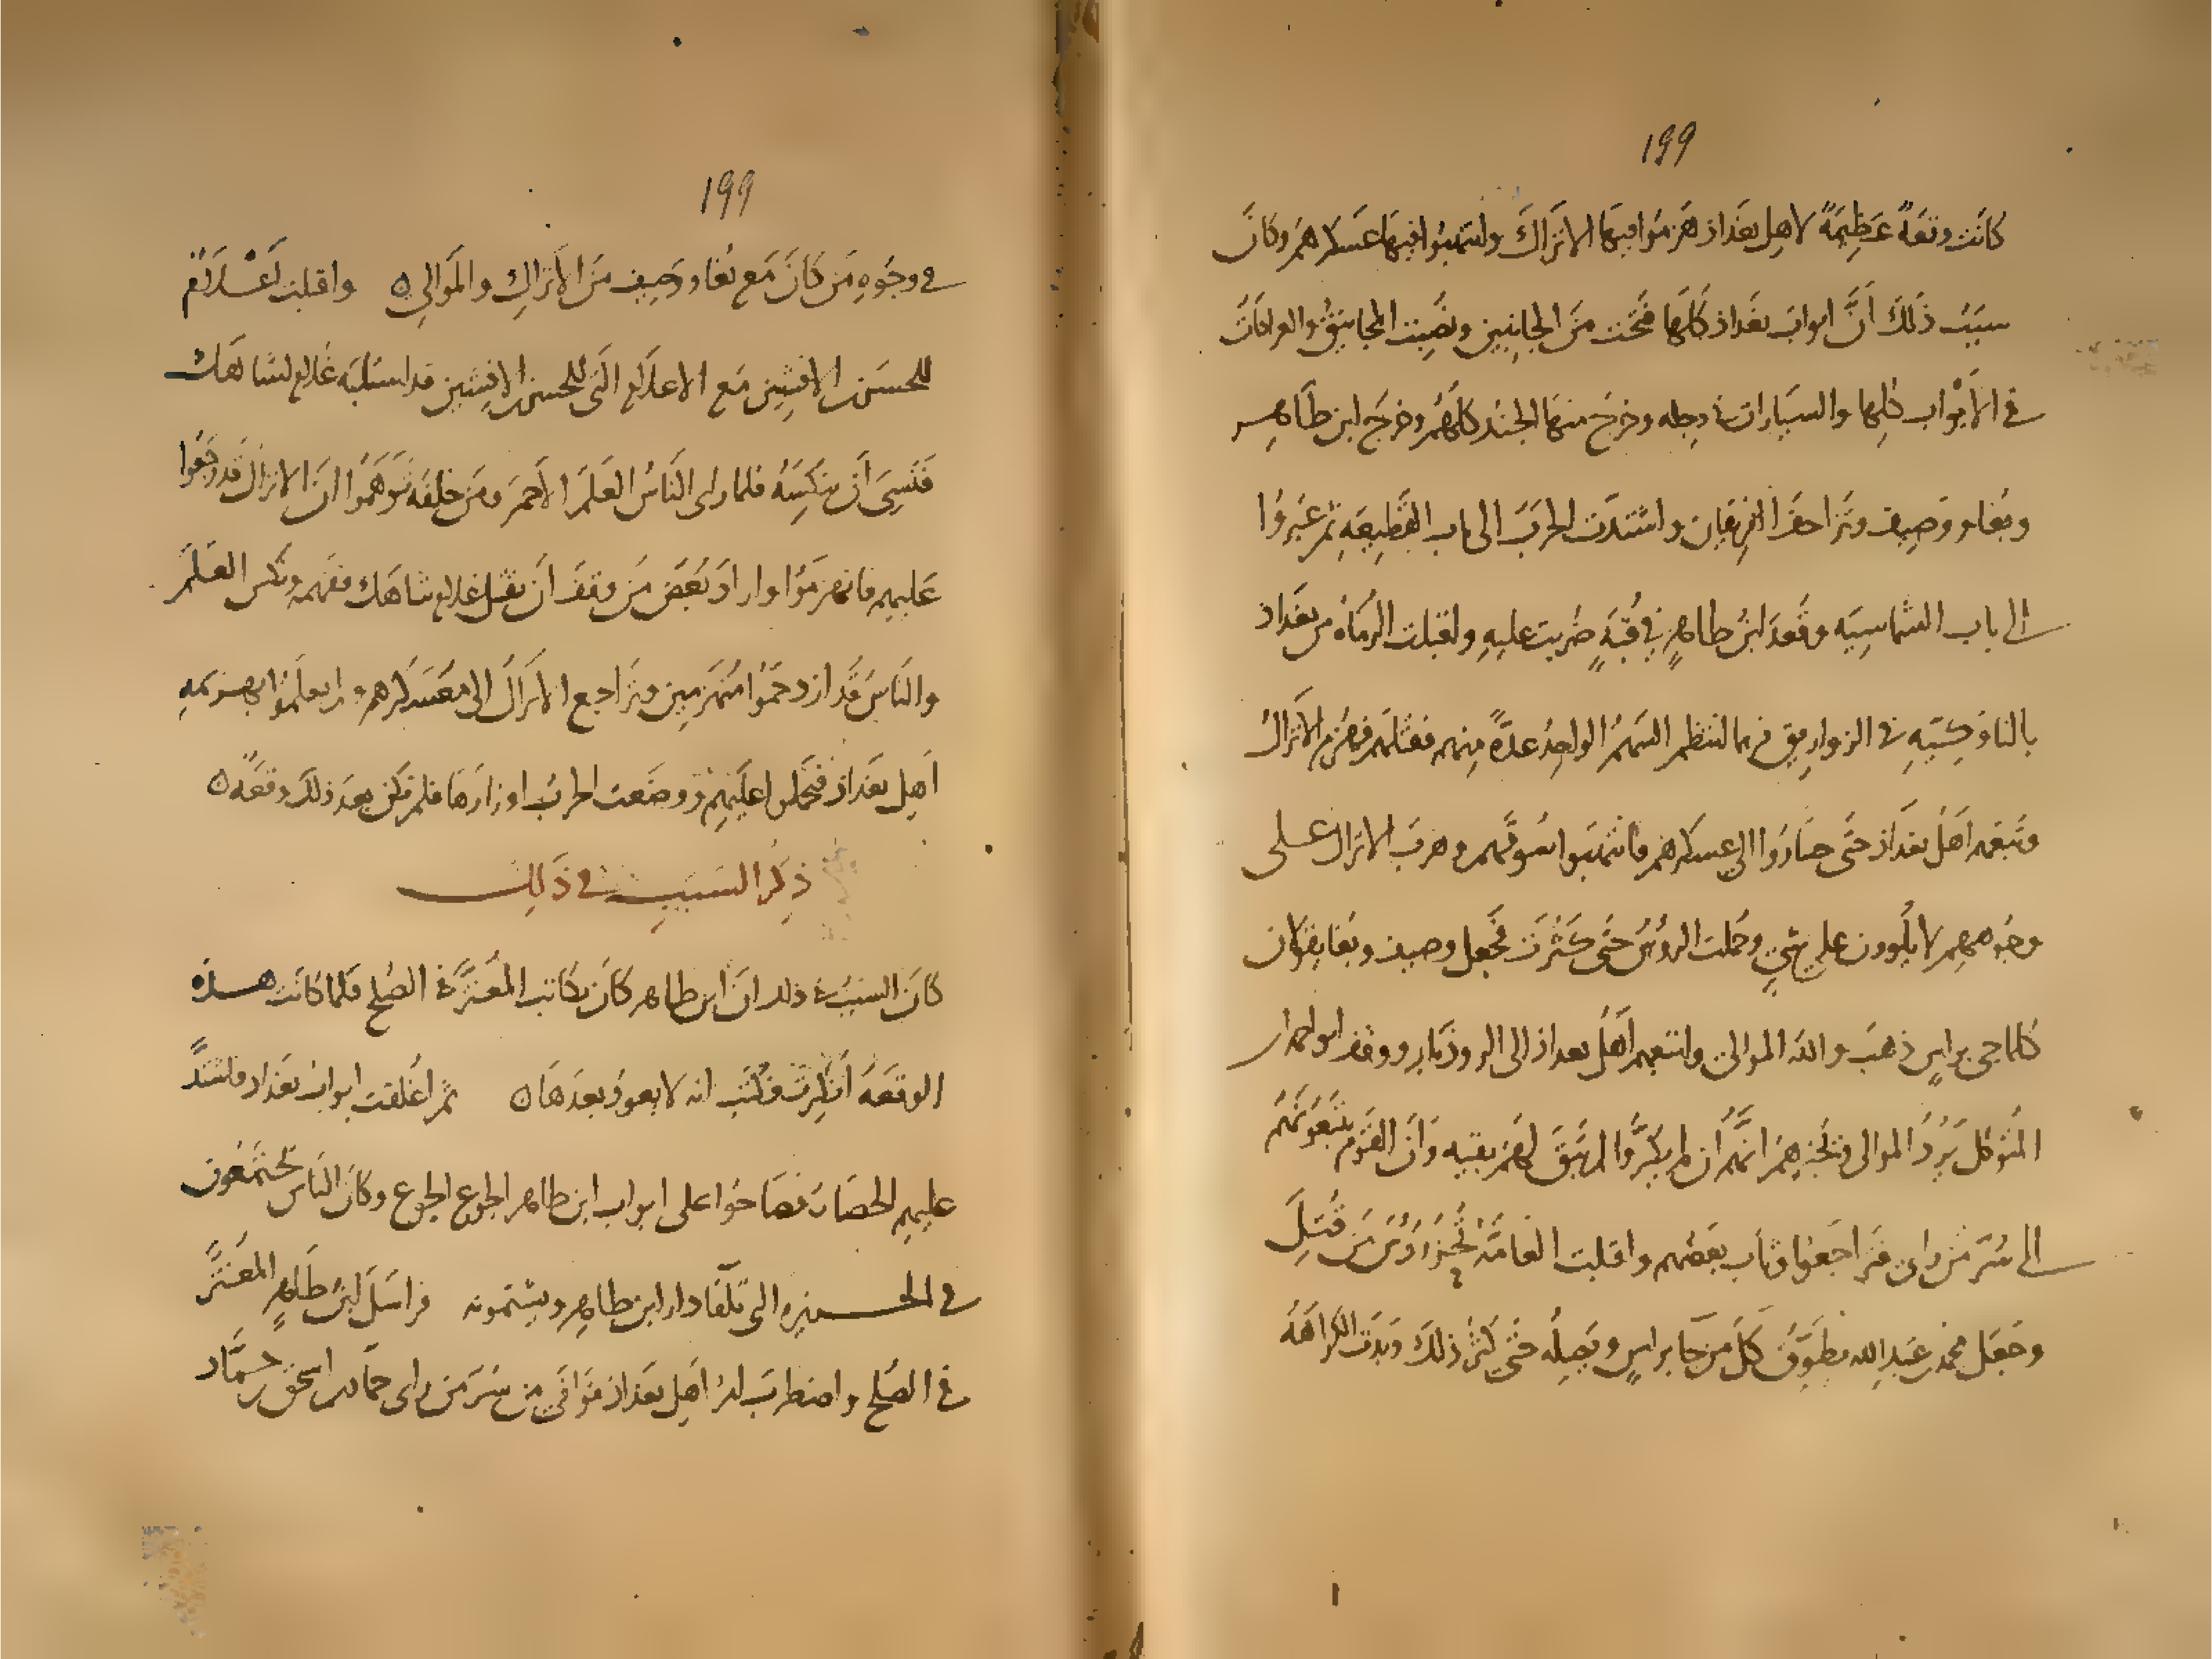 199
كانَت وقعَةٌ عَظِيمَةٌ لاهل بغداذ هَزمُوا فيهَا الاترَاكَ وانتهبُوا فيهَا عَسكرهمُ وكانَ
سبَبُ ذلكَ أنَّ ابوابَ بغداذ كلّهَا فتحت منَ الجانبين ونُصِبت المجَانيقُ والعرادَاتُ
في الأبوَاب كلِها والشبَارات في دجله وخرَجَ منهَا الجُند كلّهُم وخرجَ ابن طَاهر
وبُغا ووَصِيف وتزاحفَ الفريقان واشتدّت الحربُ الى باب القَطِيعَهِ ثم عبَروُا
الى باب الشماسِيَه وقعَد ابنُ طاهرٍ في قُبّهٍ ضُربت عليهِ واقبلت الرمَاهُ من بغدَاد
بالناوَكِيّهِ في الزواريق فربما انتظم السَهمُ الواحِدُ عدّةً مِنهم فقتلهم فهُزم الاترَاكُ
وتَبعَهم اهَلُ بغدَاذ حتَّى صَارُوا الى عسكرهم فانتهبَوا سُوقَهم وهربَ الاتراك على
وجُوههِم لا يلوُون على شيٍ وحُملت الرؤُسُ حتَّى كثُرت فجعل وصيف وبُغا يقولان
كلما جي براسٍ ذهبَ والله الموالى واتبعهم اَهَلُ بغداذ الى الروذبار ووقفَ ابو احمد ابن
المُتوكل يَرُدُ الموالى ويُخبرهُم انّهُم ان لم يَكرُّوا لم يَبقَ لهُم بقيه وَانَّ القَومُ يتبعُونَهُم
الى سُرّ مَن راى فتراجَعُوا وثابَ بعضُهم واقبلت العَامّهُ تُحزُّ رؤُسَ مَن قُتِلَ
وجَعَل محمد بن عَبدِ الله يُطَوِّقُ كلَ مَن جَا براسٍ ويَصِلُه حتَّى كثُر ذلكَ وَبدَت الكراهَهُ
199
في وجُوهِ مَن كانَ مَع بُغا ووَصِيف منَ الأترَاكِ والمَوالى ٥ واقبلت
للحسَن بن الافشين مَع الاعلام التى للحسن بن الافشين قد استلبَه غلام لشاهَك
فَنَسِىَ اَن ينكسَهُ فلما راى النّاسُ العَلمَ الأحمرَ ومَن خلفَه تَوَهّمُوا انَ الاتراك قد رجَعُوا
عَليهِم فانهزمَوُا وارادَ بَعضُ مَن وقفَ اَن يَقتل غلام شاهَك ففهمه ونكس العَلمَ
والنّاسُ قد ازدحمُوا مُنهزمين وتراجع الاترَاك الى مُعَسكرهم ولم يعلمُوا بهزيمهِ
اَهِل بغداذ فتحملوا عليهم ووضعَت الحربُ اوزارَهَا فلم تكن بعدَ ذلكَ وقعَهٌ ٥
ذِكرُ السَبَبِ في ذَلِكَ
كانَ السَببُ في ذلك انَّ ابن طاهر كانَ يكاتب المُعتزّ في الصُلح فلما كانَت هَذه
الوقعَةُ انكِرت فكتبَ انه لا يعودُ بعدَهَا ٥ ثم اُغلقت ابوابُ بغدَاد فاشتدَّ
عليهِم الحصَارُ فصَاحُوا على ابواب ابن طاهر الجوع الجوع وكانَ النّاس يجتمعُون
في الجزيره التى تلقَا دار ابن طاهر ويشتمونه فراسَلَ ابنُ طَاهرٍ المُعتزَّ
في الصُلح واضطربَ امرُ اَهِل بغداذ فوَافَى من سُرّ مَن راى حمّاد بن اسحق بن حمَّاد